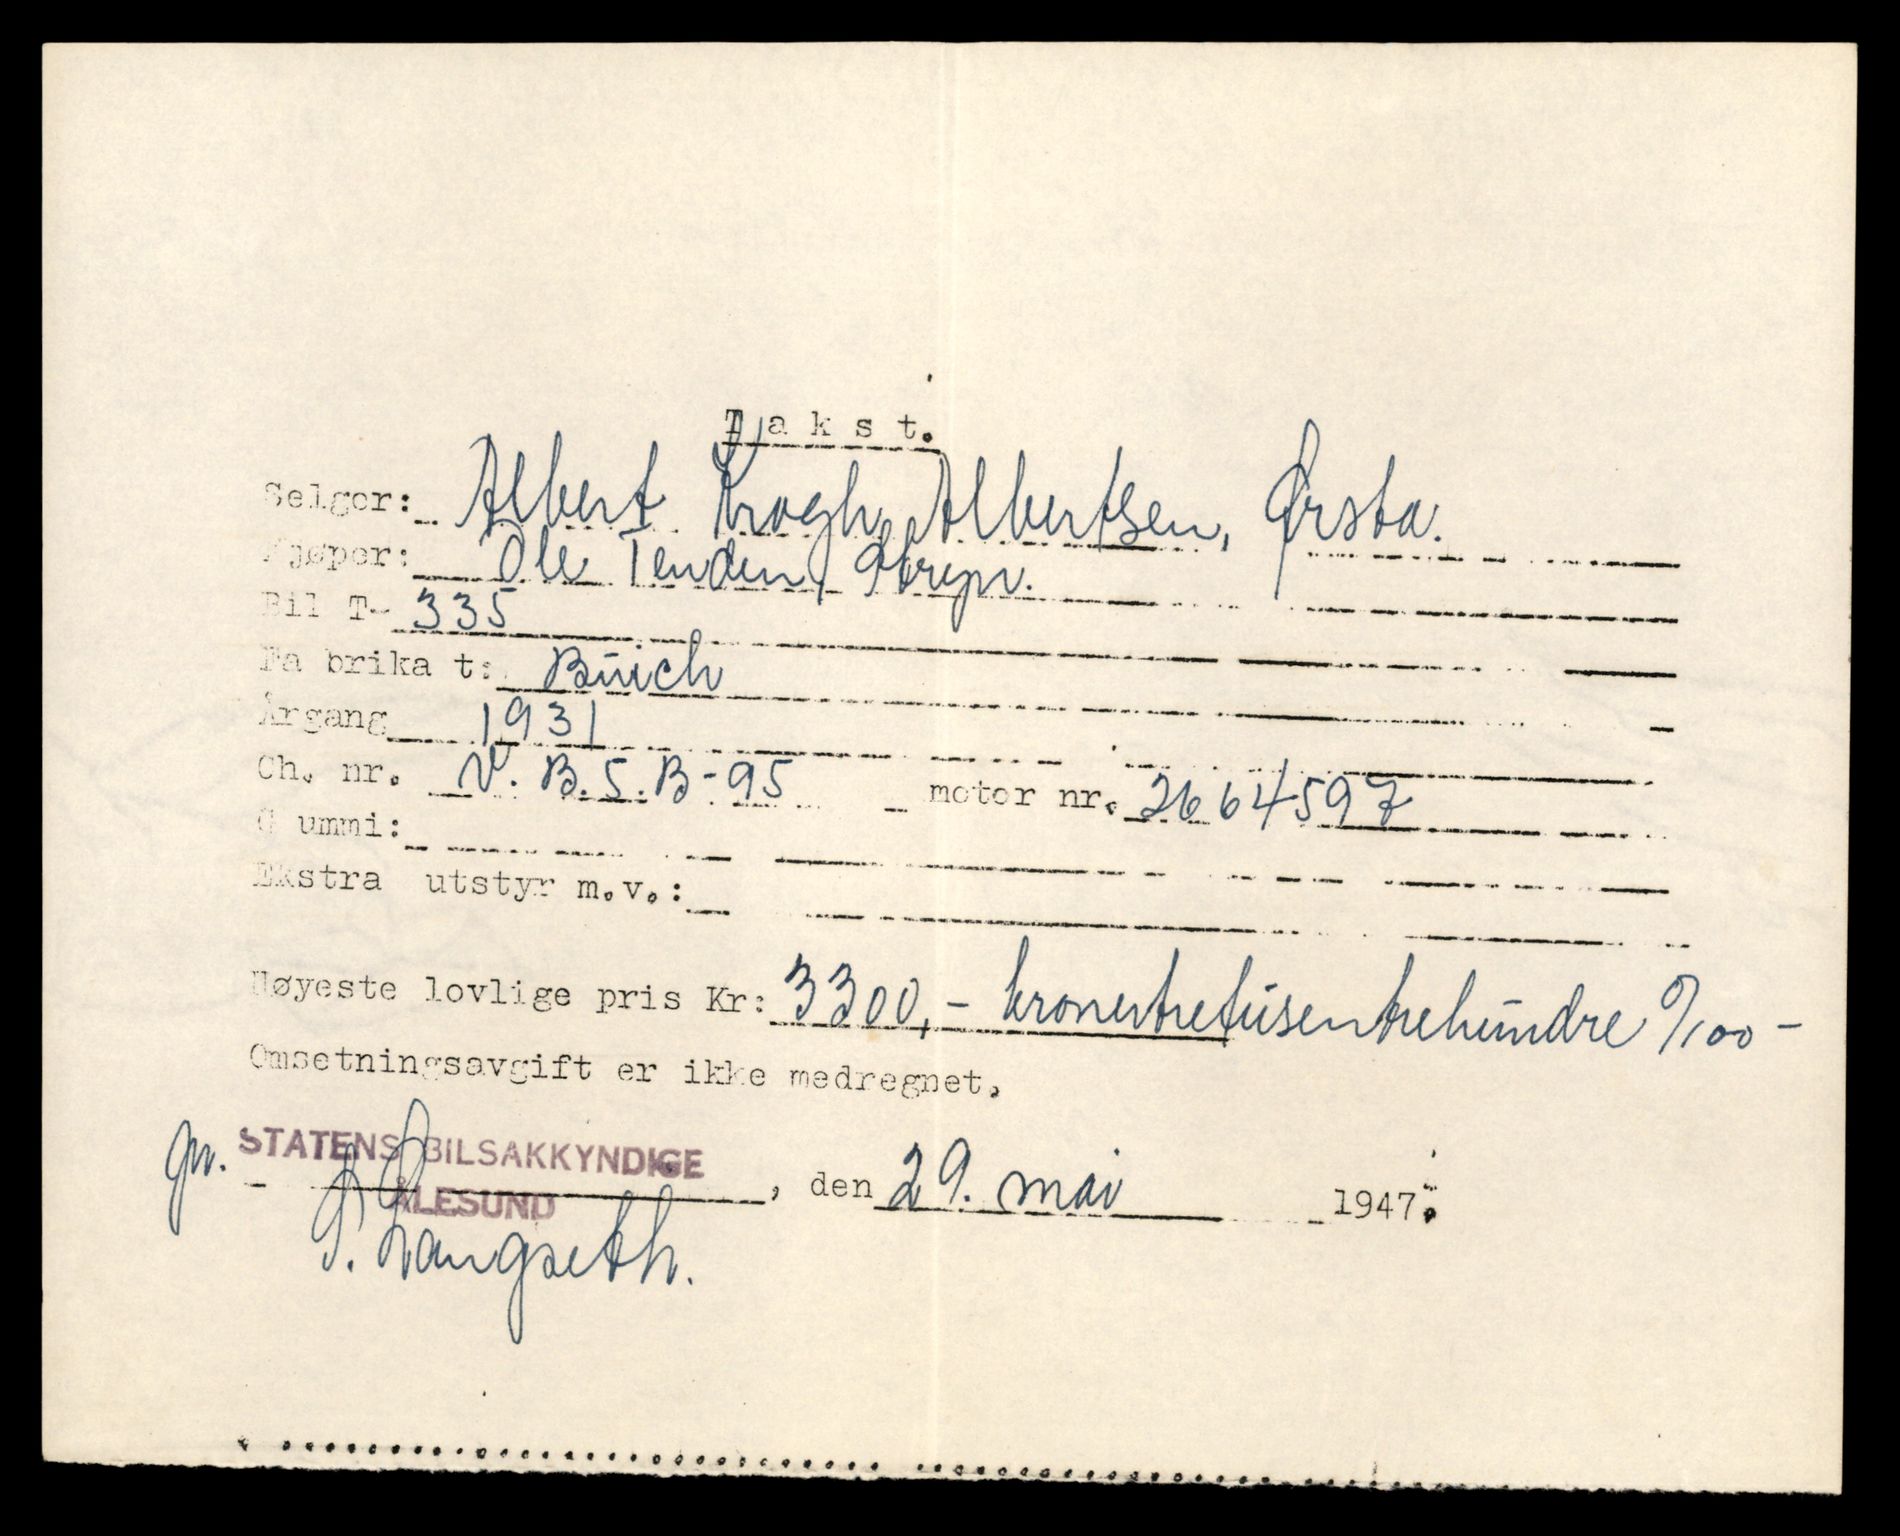 Takst.
Selger: Albert Krogh Albertsen, Ørsta.
Kjøper: Ole Tenden, Stryn.
Bil T- 335
Fabrikat: Buick
Årgang 1931
Ch. nr. V.B.5.B-95 motor nr. 2664597
Gummi:
Ekstra utstyr m.v.:
Høyeste lovlige pris Kr: 3300,- kronertretusentrehundre 0/100-
Omsetningsavgift er ikke medregnet.
STATENS BILSAKKYNDIGE
ÅLESUND, den 29. mai 1947.
P. Langseth.